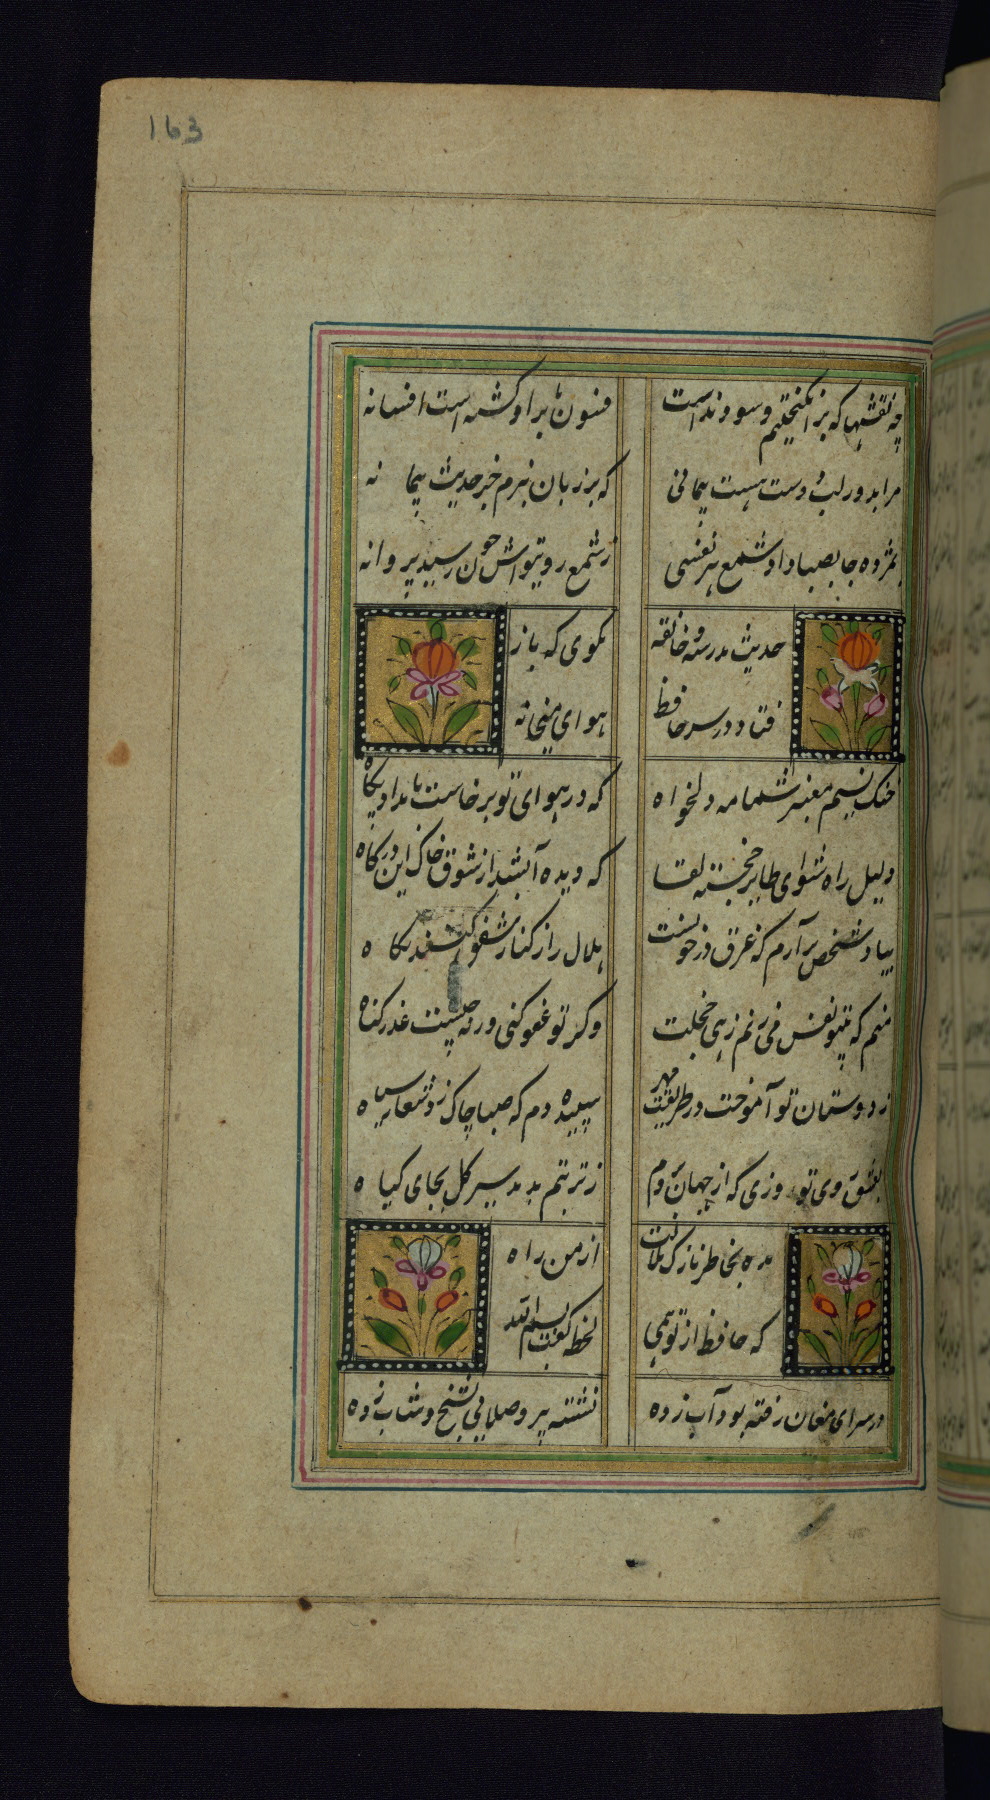 163
چه نقشها که برانگیختیم و سود نداشت
فسون ما بر او گشته است افسانه
مرا بدور لب دوست هست پیمانی
که بر زبان نبرم جز حدیث پیمانه
بمژده جان بصبا داد شمع هر نفسی
ز شمع روی تواش چون رسید پروانه
حدیث مدرسه و خانقه
مکوی که باز
فتاد در سر حافظ
هوای میخانه
خنک نسیم معنبر شمامه دلخواه
که در هوای تو برخاست بامداد پکاه
دلیل راه شو ای طایر خجسته لقا
که دیده آب شد از شوق خاک این درکاه
بیاد شخص
هلال را ز کنار شفق کنند نکاه
منم که بیتو نفس می زنم زهی خجلت
وکر تو عفو کنی ورنه چیست عذر کناه
ز دوستان تو آموخت در طریقت مهر
سپیده دم که صبا چاک زد شعار سیاه
بعشق روی تو روزی که از جهان بروم
ز تربتم بدمد سرخ کل بجای کیاه
مده بخاطر نازک ملالت
از من راه
که حافظ از تو همی
لحظه کفت بسم الله
در سرای مغان رفته بود آب زده
نشسته پیر و صلایی بشیخ و شاب زده